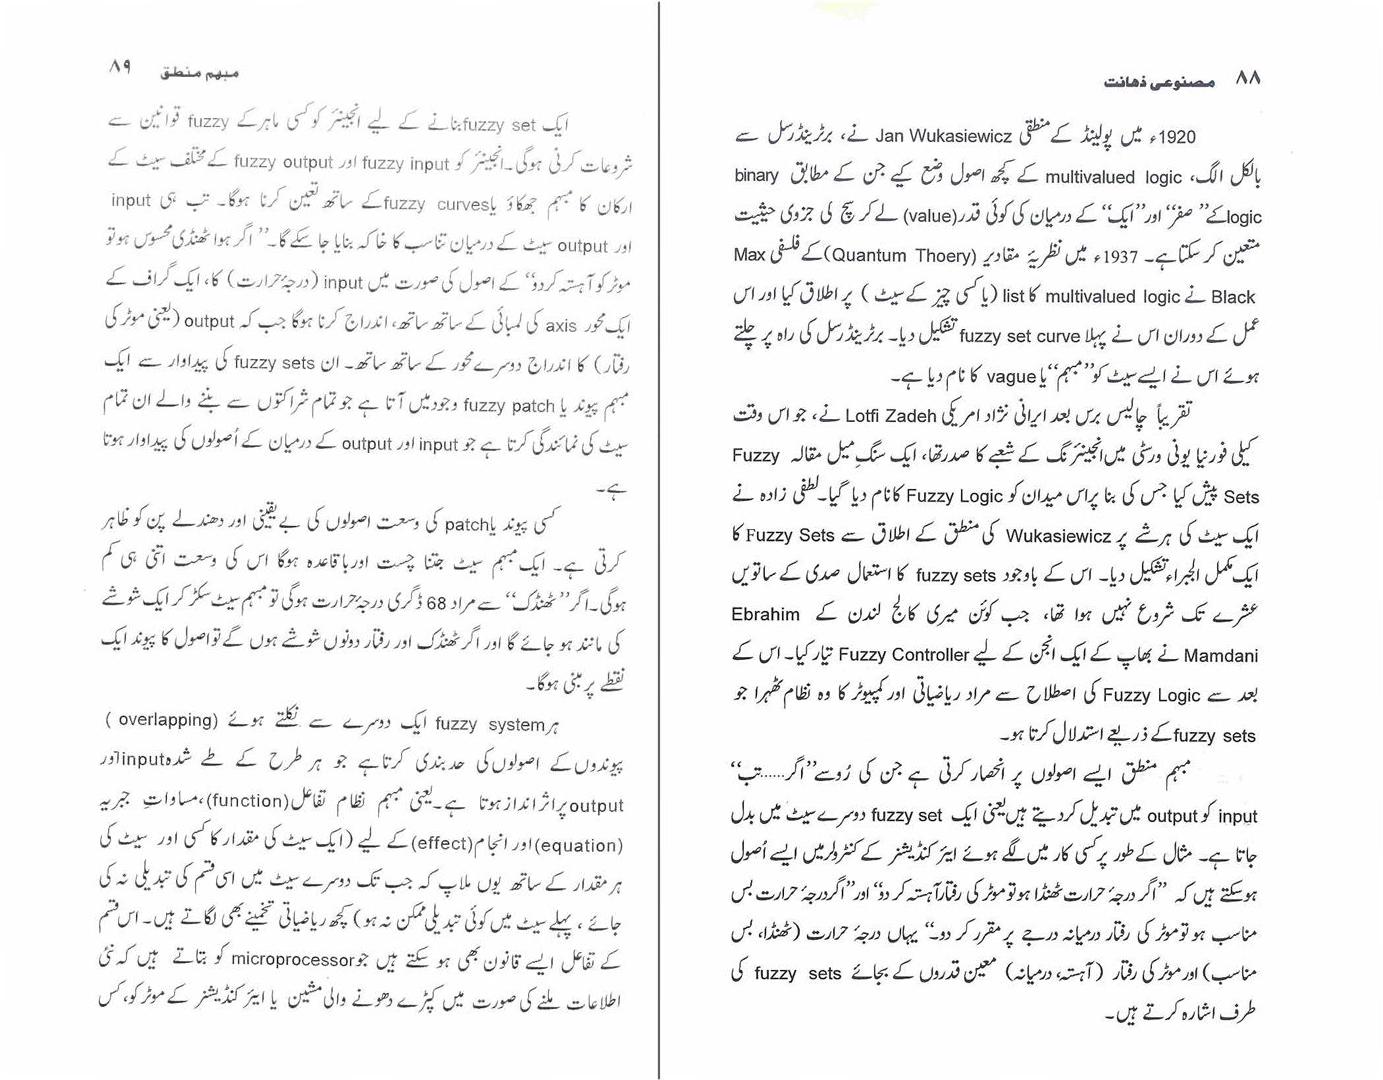 ۸۸ مصنوعی ذهانت
1920ء میں پولینڈ کے منطقی Jan Wukasiewicz نے، برٹرینڈرسل سے
بالکل الگ، multivalued logic کے کچھ اصول وضع کیے جن کے مطابق binary
logicکے ”صفر“ اور ”ایک“ کے درمیان کی کوئی قدر(value) لے کر سچ کی جزوی حیثیت
متعین کر سکتا ہے۔ 1937ء میں نظریۂ مقادیر (Quantum Thoery)کے فلسفی Max
Black نے multivalued logic کا list (یا کسی چیز کے سیٹ ) پر اطلاق کیا اور اس
عمل کے دوران اس نے پہلا fuzzy set curve تشکیل دیا۔ برٹرینڈرسل کی راہ پر چلتے
ہوئے اس نے ایسے سیٹ کو ”مبہم“ یا vague کا نام دیا ہے۔
تقریباً چالیس برس بعد ایرانی نژاد امریکی Lotfi Zadeh نے، جو اس وقت
کیلی فورنیا یونی ورسٹی میں انجینئرنگ کے شعبے کا صدر تھا، ایک سنگِ میل مقالہ Fuzzy
Sets پیش کیا جس کی بنا پر اس میدان کو Fuzzy Logic کا نام دیا گیا۔ لطفی زادہ نے
ایک سیٹ کی ہر شے پر Wukasiewicz کی منطق کے اطلاق سے Fuzzy Sets کا
ایک مکمل الجبراء تشکیل دیا۔ اس کے باوجود fuzzy sets کا استعمال صدی کے ساتویں
عشرے تک شروع نہیں ہوا تھا، جب کوئن میری کالج لندن کے Ebrahim
Mamdani نے بھاپ کے ایک انجن کے لیے Fuzzy Controller تیار کیا۔ اس کے
بعد سے Fuzzy Logic کی اصطلاح سے مراد ریاضیاتی اور کمپیوٹر کا وہ نظام ٹھہرا جو
fuzzy setsکے ذریعے استدلال کرتا ہو۔
مبہم منطق ایسے اصولوں پر انحصار کرتی ہے جن کی رُو سے ”اگر......تب“
input کو output میں تبدیل کر دیتے ہیں یعنی ایک fuzzy set دوسرے سیٹ میں بدل
جاتا ہے۔ مثال کے طور پر کسی کار میں لگے ہوئے ایئر کنڈیشنر کے کنٹرولر میں ایسے اُصول
ہو سکتے ہیں کہ ”اگر درجۂ حرارت ٹھنڈا ہو تو موٹر کی رفتار آہستہ کر دو“ اور ”اگر درجۂ حرارت بس
مناسب ہو تو موٹر کی رفتار درمیانہ درجے پر مقرر کر دو۔“ یہاں درجۂ حرارت (ٹھنڈا، بس
مناسب) اور موٹر کی رفتار (آہستہ، درمیانہ) معین قدروں کے بجائے fuzzy sets کی
طرف اشارہ کرتے ہیں۔
مبہم منطق ۸۹
ایک fuzzy setبنانے کے لیے انجینئر کو کسی ماہر کے fuzzy قوانین سے
شروعات کرنی ہوگی۔ انجینئر کو fuzzy input اور fuzzy output کے مختلف سیٹ کے
ارکان کا مبہم جھکاؤ یا fuzzy curvesکے ساتھ تعین کرنا ہوگا۔ تب ہی input
اور output سیٹ کے درمیان تناسب کا خاکہ بنایا جا سکے گا۔ ”اگر ہوا ٹھنڈی محسوس ہو تو
موٹر کو آہستہ کر دو“ کے اصول کی صورت میں input (درجۂ حرارت) کا، ایک گراف کے
ایک محور axis کی لمبائی کے ساتھ ساتھ، اندراج کرنا ہوگا جب کہ output (یعنی موٹر کی
رفتار) کا اندراج دوسرے محور کے ساتھ ساتھ۔ ان fuzzy sets کی پیداوار سے ایک
مبہم پیوند یا fuzzy patch وجود میں آتا ہے جو تمام شراکتوں سے بننے والے ان تمام
سیٹ کی نمائندگی کرتا ہے جو input اور output کے درمیان کے اُصولوں کی پیداوار ہوتا
ہے۔
کسی پیوند یا patch کی وسعت اصولوں کی بے یقینی اور دھندلے پن کو ظاہر
کرتی ہے۔ ایک مبہم سیٹ جتنا چست اور باقاعدہ ہوگا اس کی وسعت اتنی ہی کم
ہوگی۔ اگر ”ٹھنڈک“ سے مراد 68 ڈگری درجۂ حرارت ہوگی تو مبہم سیٹ سکڑ کر ایک شوشے
کی مانند ہو جائے گا اور اگر ٹھنڈک اور رفتار دونوں شوشے ہوں گے تو اصول کا پیوند ایک
نقطے پر مبنی ہوگا۔
ہر fuzzy system ایک دوسرے سے نکلتے ہوئے (overlapping )
پیوندوں کے اصولوں کی حد بندی کرتا ہے جو ہر طرح کے طے شدہ input اور
output پر اثر انداز ہوتا ہے۔ یعنی مبہم نظام تفاعل(function)، مساواتِ جبریہ
(equation) اور انجام (effect) کے لیے (ایک سیٹ کی مقدار کا کسی اور سیٹ کی
ہر مقدار کے ساتھ یوں ملاپ کہ جب تک دوسرے سیٹ میں اسی قسم کی تبدیلی نہ کی
جائے، پہلے سیٹ میں کوئی تبدیلی ممکن نہ ہو) کچھ ریاضیاتی تخمینے بھی لگاتے ہیں۔ اس قسم
کے تفاعل ایسے قانون بھی ہو سکتے ہیں جو microprocessor کو بتاتے ہیں کہ نئی
اطلاعات ملنے کی صورت میں کپڑے دھونے والی مشین یا ایئر کنڈیشنر کے موٹر کو، کس